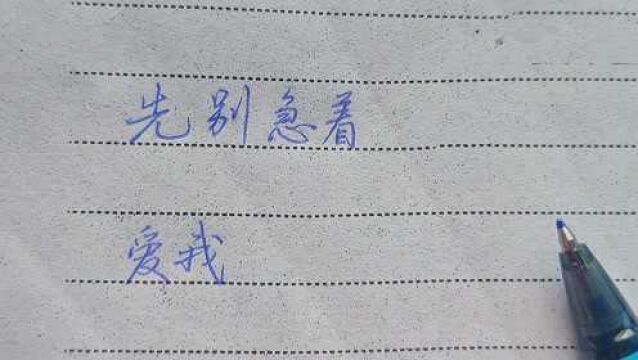 先别急着
爱我